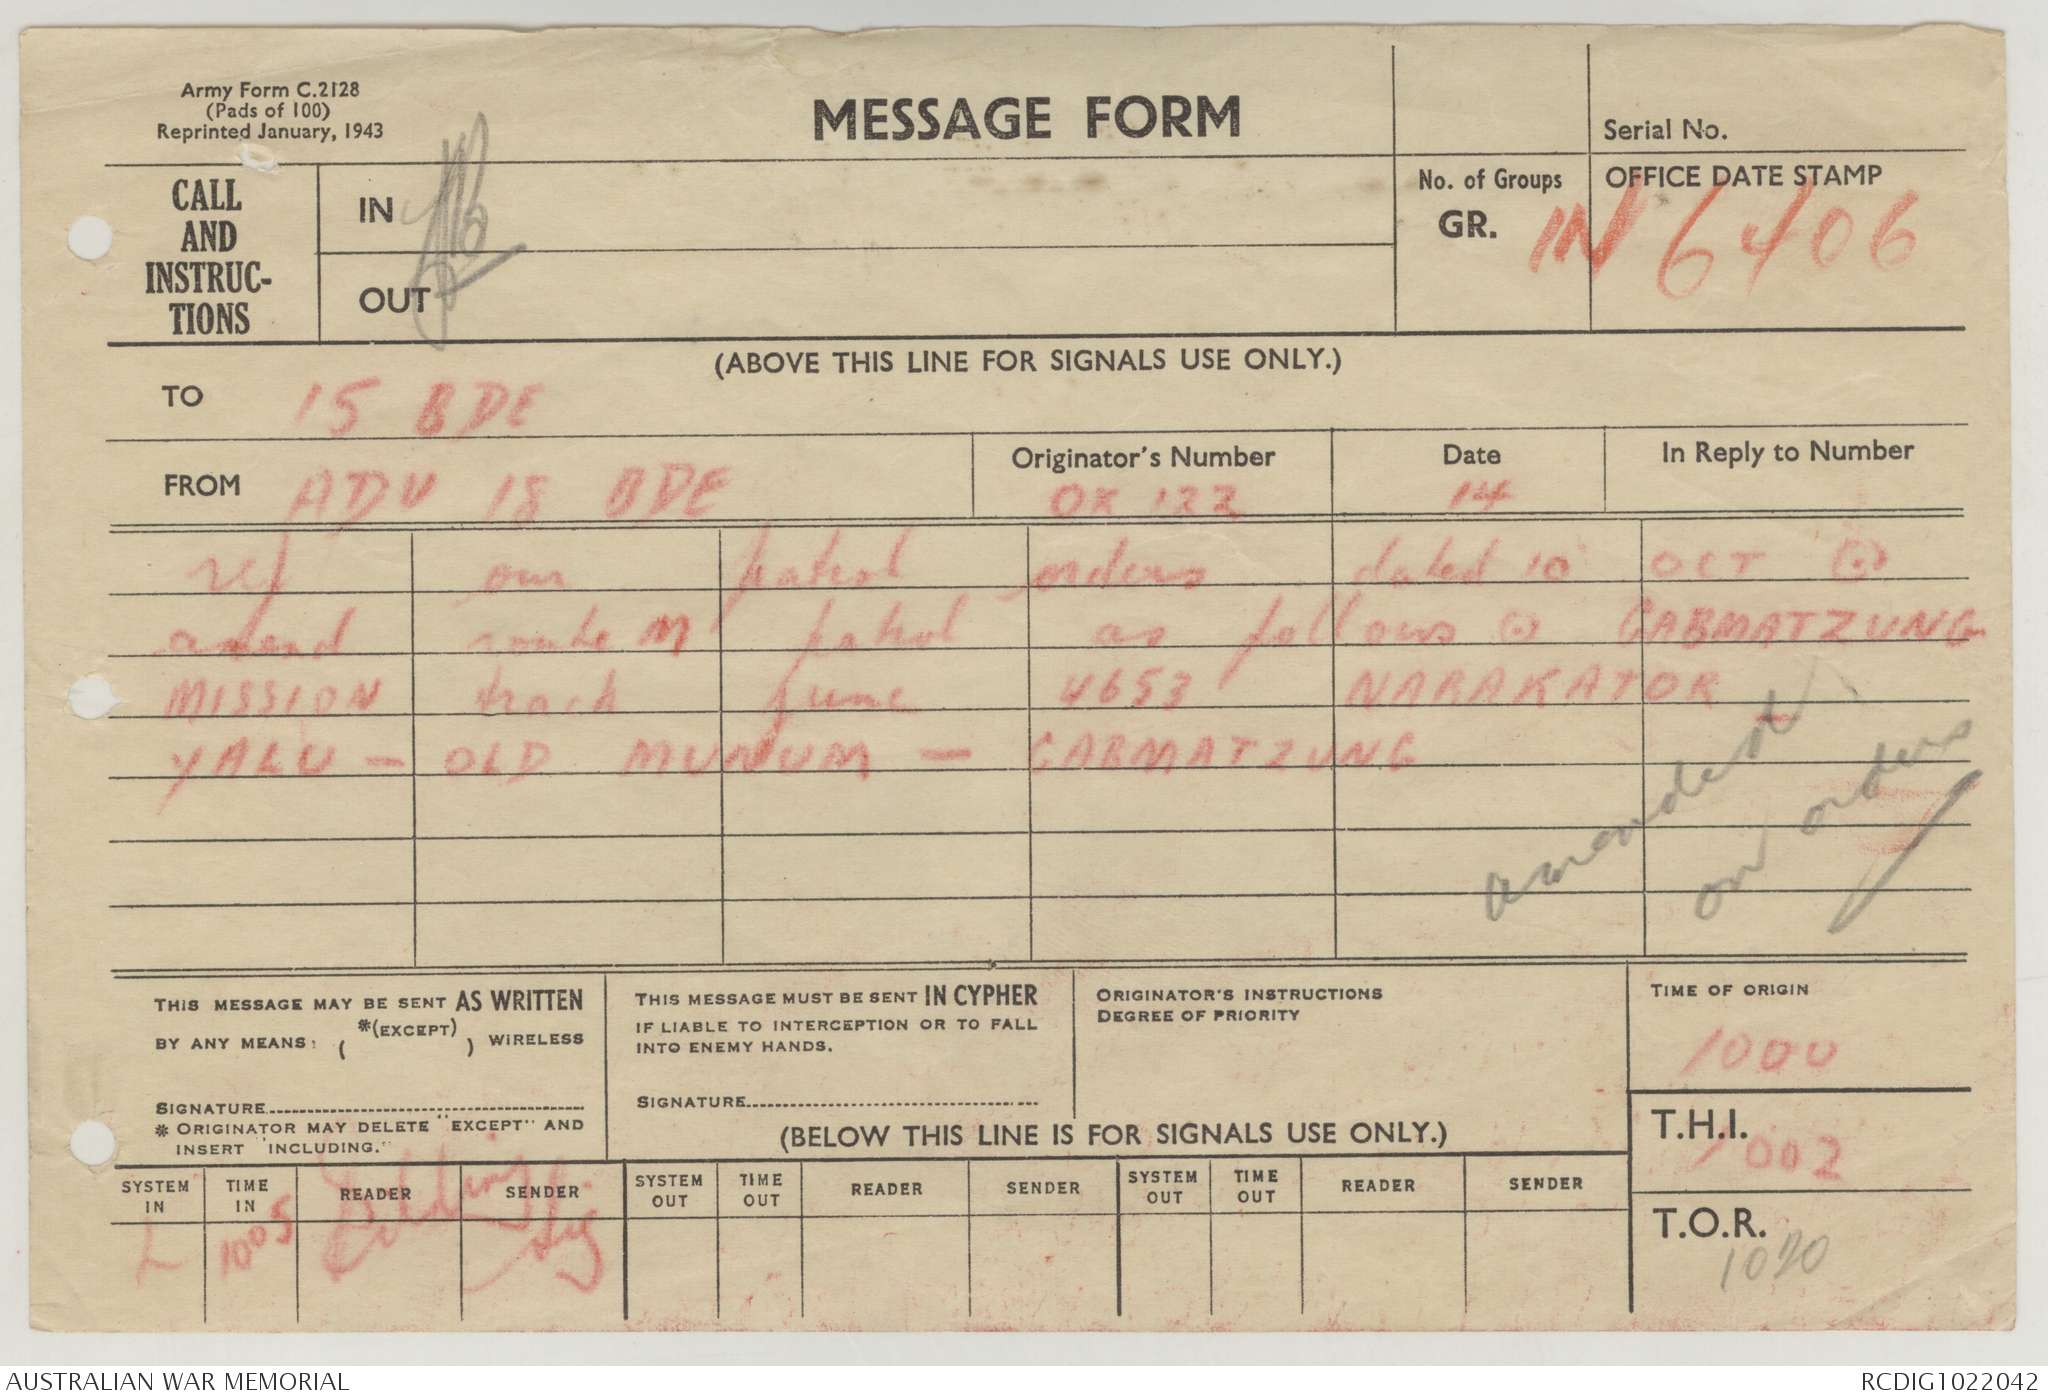 Army Form C.2128
(Pads of 100)
Reprinted January, 1943
MESSAGE FORM
Serial No.
CALL AND INSTRUC-TIONS
IN
OUT
No. of Groups
GR.
OFFICE DATE STAMP
IN 6406
(ABOVE THIS LINE FOR SIGNALS USE ONLY.)
TO 15 BDE
FROM ADV 18 BDE
Originator's Number
OX 122
Date
14
In Reply to Number
ref our patrol orders dated 10 OCT (.)
amend route M patrol as follows (.) GABMATZUNG
MISSION track junc 4653 NARAKATOR
YALU - OLD MUNUM - GABMATZUNG
amended
on orders
THIS MESSAGE MAY BE SENT AS WRITTEN
BY ANY MEANS: ( *(EXCEPT) ) WIRELESS
SIGNATURE
* ORIGINATOR MAY DELETE "EXCEPT" AND
INSERT "INCLUDING."
THIS MESSAGE MUST BE SENT IN CYPHER
IF LIABLE TO INTERCEPTION OR TO FALL
INTO ENEMY HANDS.
SIGNATURE
ORIGINATOR'S INSTRUCTIONS
DEGREE OF PRIORITY
TIME OF ORIGIN
1000
(BELOW THIS LINE IS FOR SIGNALS USE ONLY.)
T.H.I.
1002
SYSTEM IN TIME IN READER SENDER SYSTEM OUT TIME OUT READER SENDER SYSTEM OUT TIME OUT READER SENDER
L 1005 Sig
T.O.R.
1020
AUSTRALIAN WAR MEMORIAL
RCDIG1022042